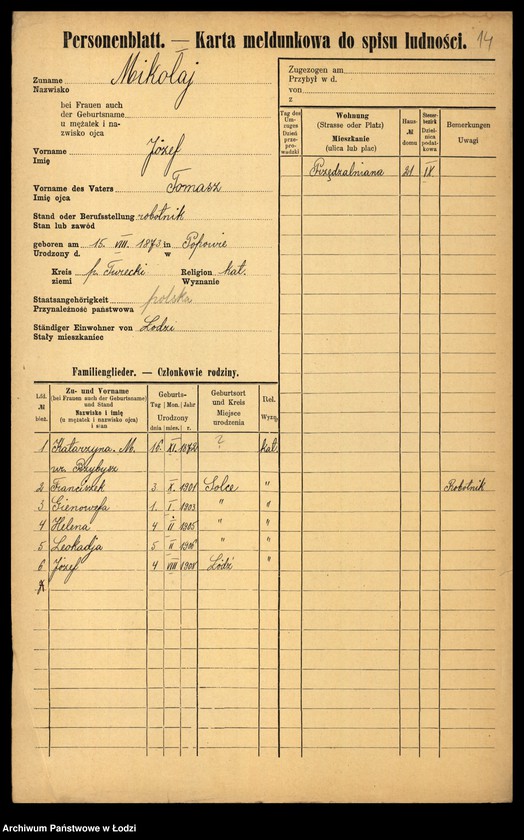 Personenblatt. — Karta meldunkowa do spisu ludności.
14
Zuname Mikołaj
Nazwisko
bei Frauen auch
der Geburtsname
u mężatek i na-
zwisko ojca
Vorname Józef
Imię
Vorname des Vaters Tomasz
Imię ojca
Stand oder Berufsstellung robotnik
Stan lub zawód
geboren am 15. VIII. 1873 in Popowie
Urodzony d. w
Kreis p. Turecki Religion kat.
ziemi Wyznanie
Staatsangehörigkeit polska
Przynależność państwowa
Ständiger Einwohner von Łodzi
Stały mieszkaniec
Zugezogen am
Przybył w d.
von
z
Tag des Um-zuges Dzień prze-prowadzki
Wohnung
(Strasse oder Platz)
Mieszkanie
(ulica lub plac)
Haus-
№
domu
Steuer-
bezirk
Dziel-
nica
podat-
kowa
Bemerkungen
Uwagi
Przędzalniana 21 IX
Familienglieder. — Członkowie rodziny.
Lfd.
№
bież.
Zu- und Vorname
(bei Frauen auch der Geburtsname)
und Stand
Nazwisko i imię
(u mężatek i nazwisko ojca)
i stan
Geburts-
Tag Mon. Jahr
Urodzony
dnia mies. r.
Geburtsort
und Kreis
Miejsce
urodzenia
Rel.
Wyzn.
1 Katarzyna. M. 16 XI. 1872 ? kat.
ur. Przybysz
2 Franciszek 3 X. 1901 Solce " Robotnik
3 Gienowefa 1. I 1903 " "
4 Helena 4 II 1905 " "
5 Leokadja 5 II 1906 " "
6 Józef 4 VIII 1908 Łódź "
Archiwum Państwowe w Łodzi